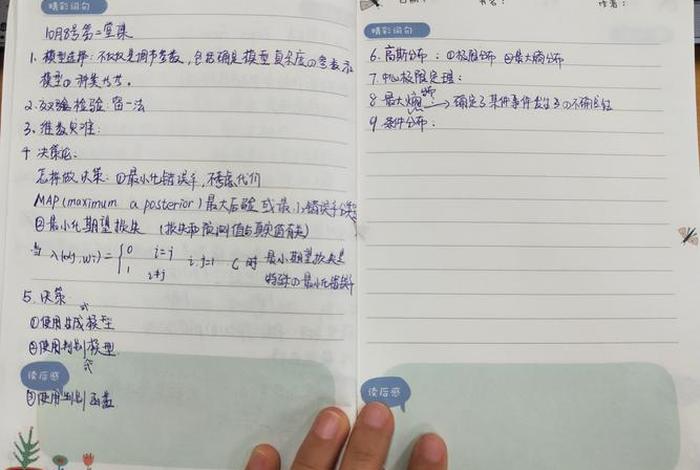 精彩词句
10月8号第二堂课
1. 模型选择: 不仅仅是调节参数, 包括确定模型复杂度的参数以及
模型的种类分析。
2. 交叉验检验: 留一法
3. 维数灾难:
4 决策论:
怎样做决策: ①最小化错误率, 不考虑代价
MAP(maximum a posterior)最大后验 或最小错误率分类
②最小化期望损失 (损失和预测值与真实值有关)
当 λ(αj,wi)= {0 i=j i,j=1 C 时 最小期望损失是
1 i≠j 特殊的最小化错误率
5. 决策
①使用生成式模型
②使用判别式模型
读后感
③使用判别函数
精彩词句
6. 高斯分布: ①极限分布 ②最大熵分布
7. 中心极限定理:
8 最大熵 → 确定了某件事件发生了的不确定性
9. 条件分布:
读后感